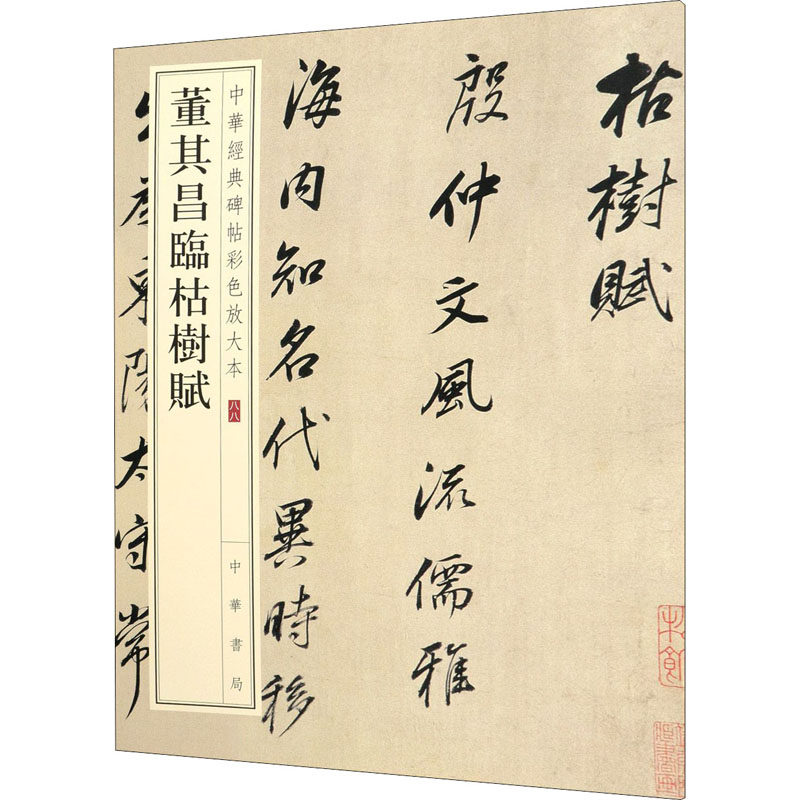 枯樹賦
殷仲文風流儒雅
海内知名代異時移
出為東陽太守常
中華經典碑帖彩色放大本
八八
董其昌臨枯樹賦
中華書局